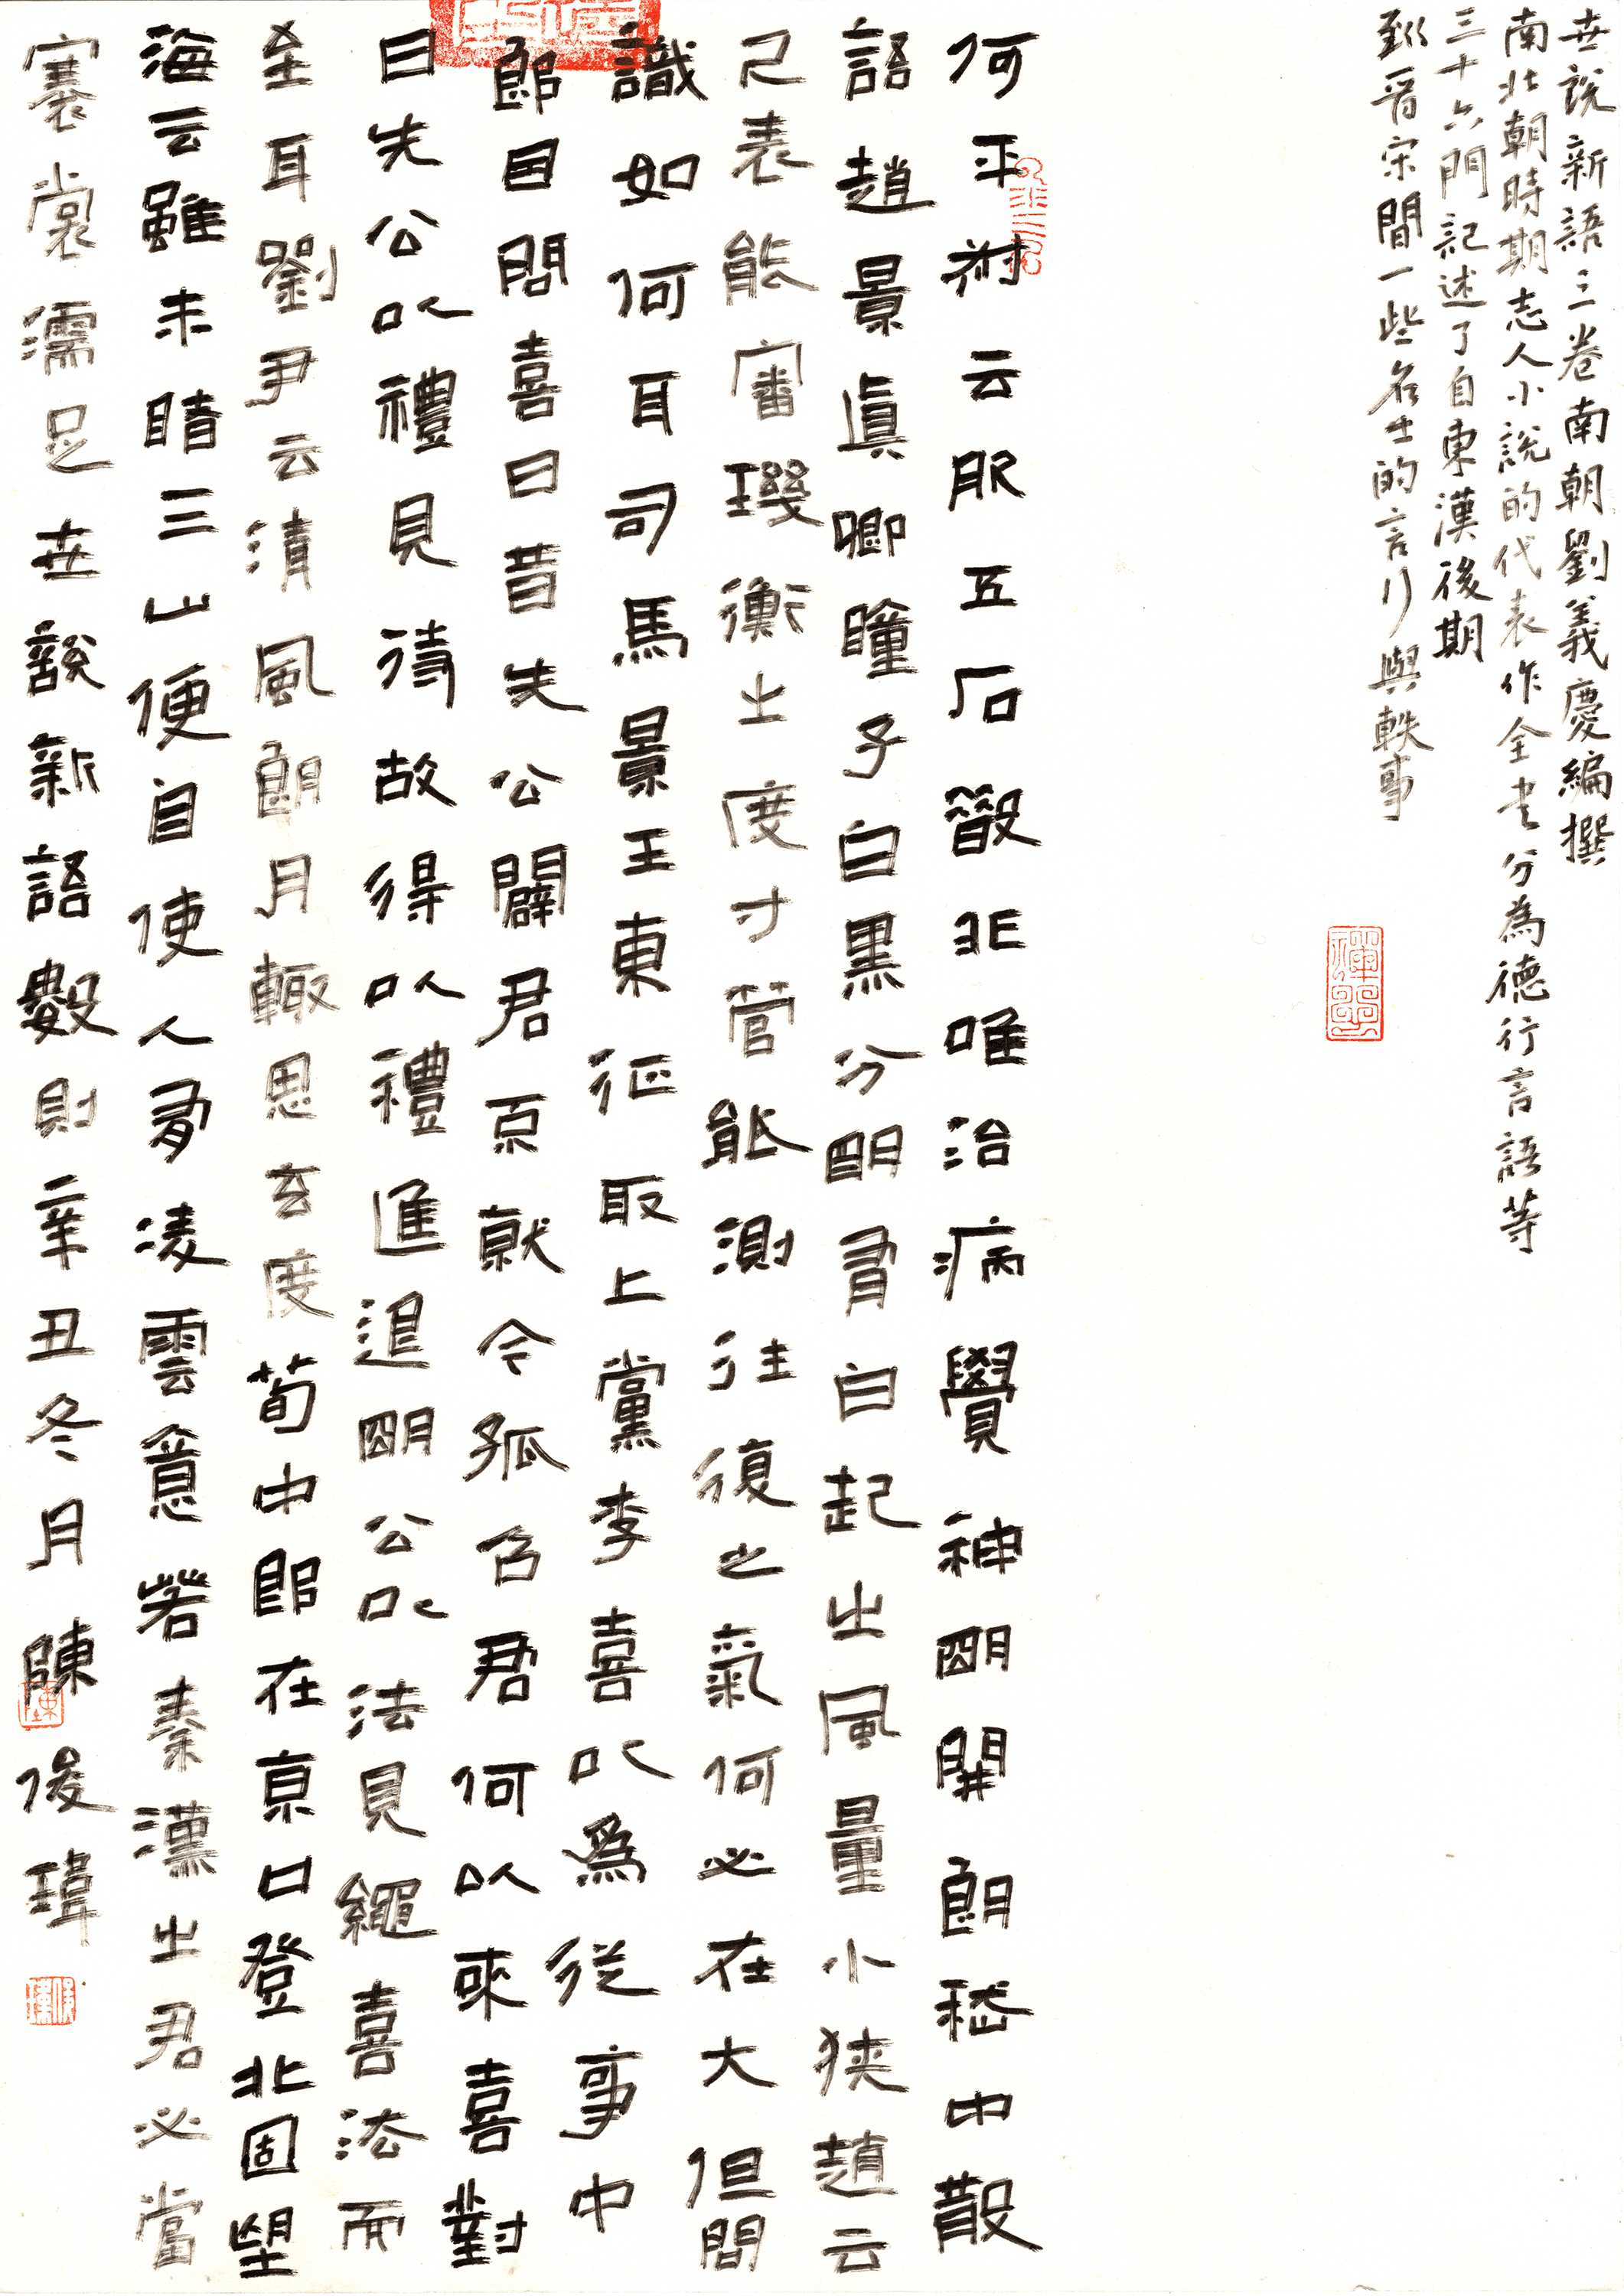 世說新語三卷南朝劉義慶編撰
南北朝時期志人小說的代表作全書分為德行言語等
三十六門記述了自東漢後期
到晉宋間一些名士的言行與軼事
何平叔云服五石散非唯治病覺神明開朗嵇中散
語趙景真卿瞳子白黑分明有白起之風量小狹趙云
尺表能審璣衡之度寸管能測往復之氣何必在大但問
識如何耳司馬景王東征取上黨李喜以為從事中
郎因問喜曰昔先公闢君不就今孤召君何以來喜對
曰先公以禮見待故得以禮進退明公以法見繩喜法而
至耳劉尹云清風朗月輒思玄度荀中郎在京口登北固望
海云雖未睹三山便自使人有凌雲意若秦漢之君必當
褰裳濡足世說新語數則辛丑冬月陳俊瑋